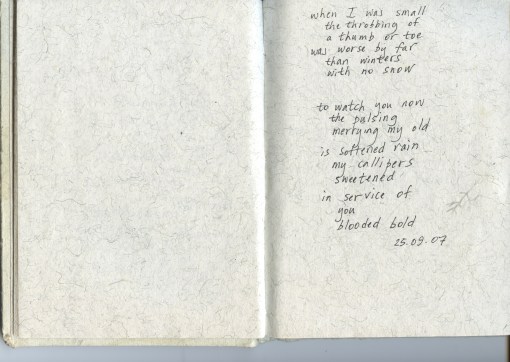 when I was small
the throbbing of
a thumb or toe
was worse by far
than winters
with no snow
to watch you now
the pulsing
merrying my old
is softened rain
my callipers
sweetened
in service of
you
blooded bold
25.09.07